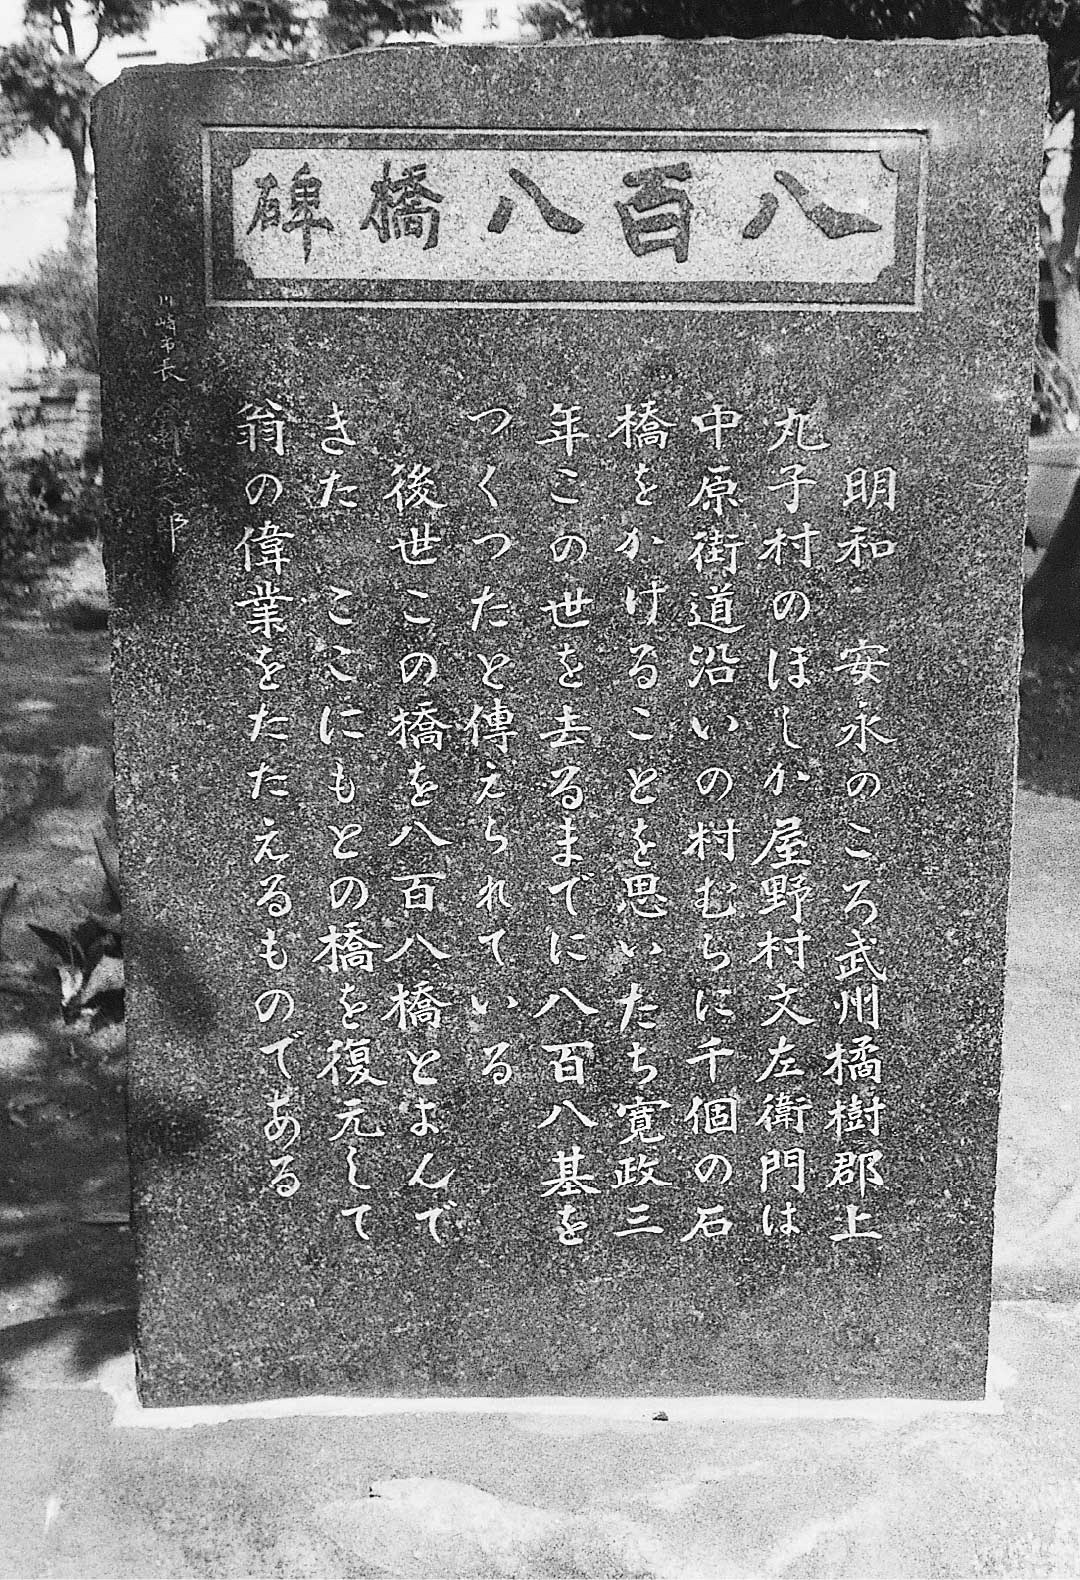 八百八橋碑
明和　安永のころ武州橘樹郡上
丸子村のほしか屋野村文左衛門は
中原街道沿いの村むらに千個の石
橋をかけることを思いたち寛政三
年この世を去るまでに八百八基を
つくつたと傳えられている
後世この橋を八百八橋とよんで
きた　ここにもとの橋を復元して
翁の偉業をたたえるものである
川崎市長